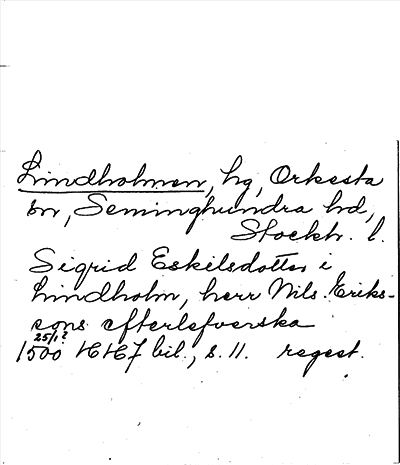 Lindholmen, hg, Orkesta
sn, Seminghundra hd,
Stockh. l.
Sigrid Eskilsdotter i
Lindholm, herr Nils Eriks-
sons efterlefverska
25/1?
1500 HH7 bil., s. 11. regest.